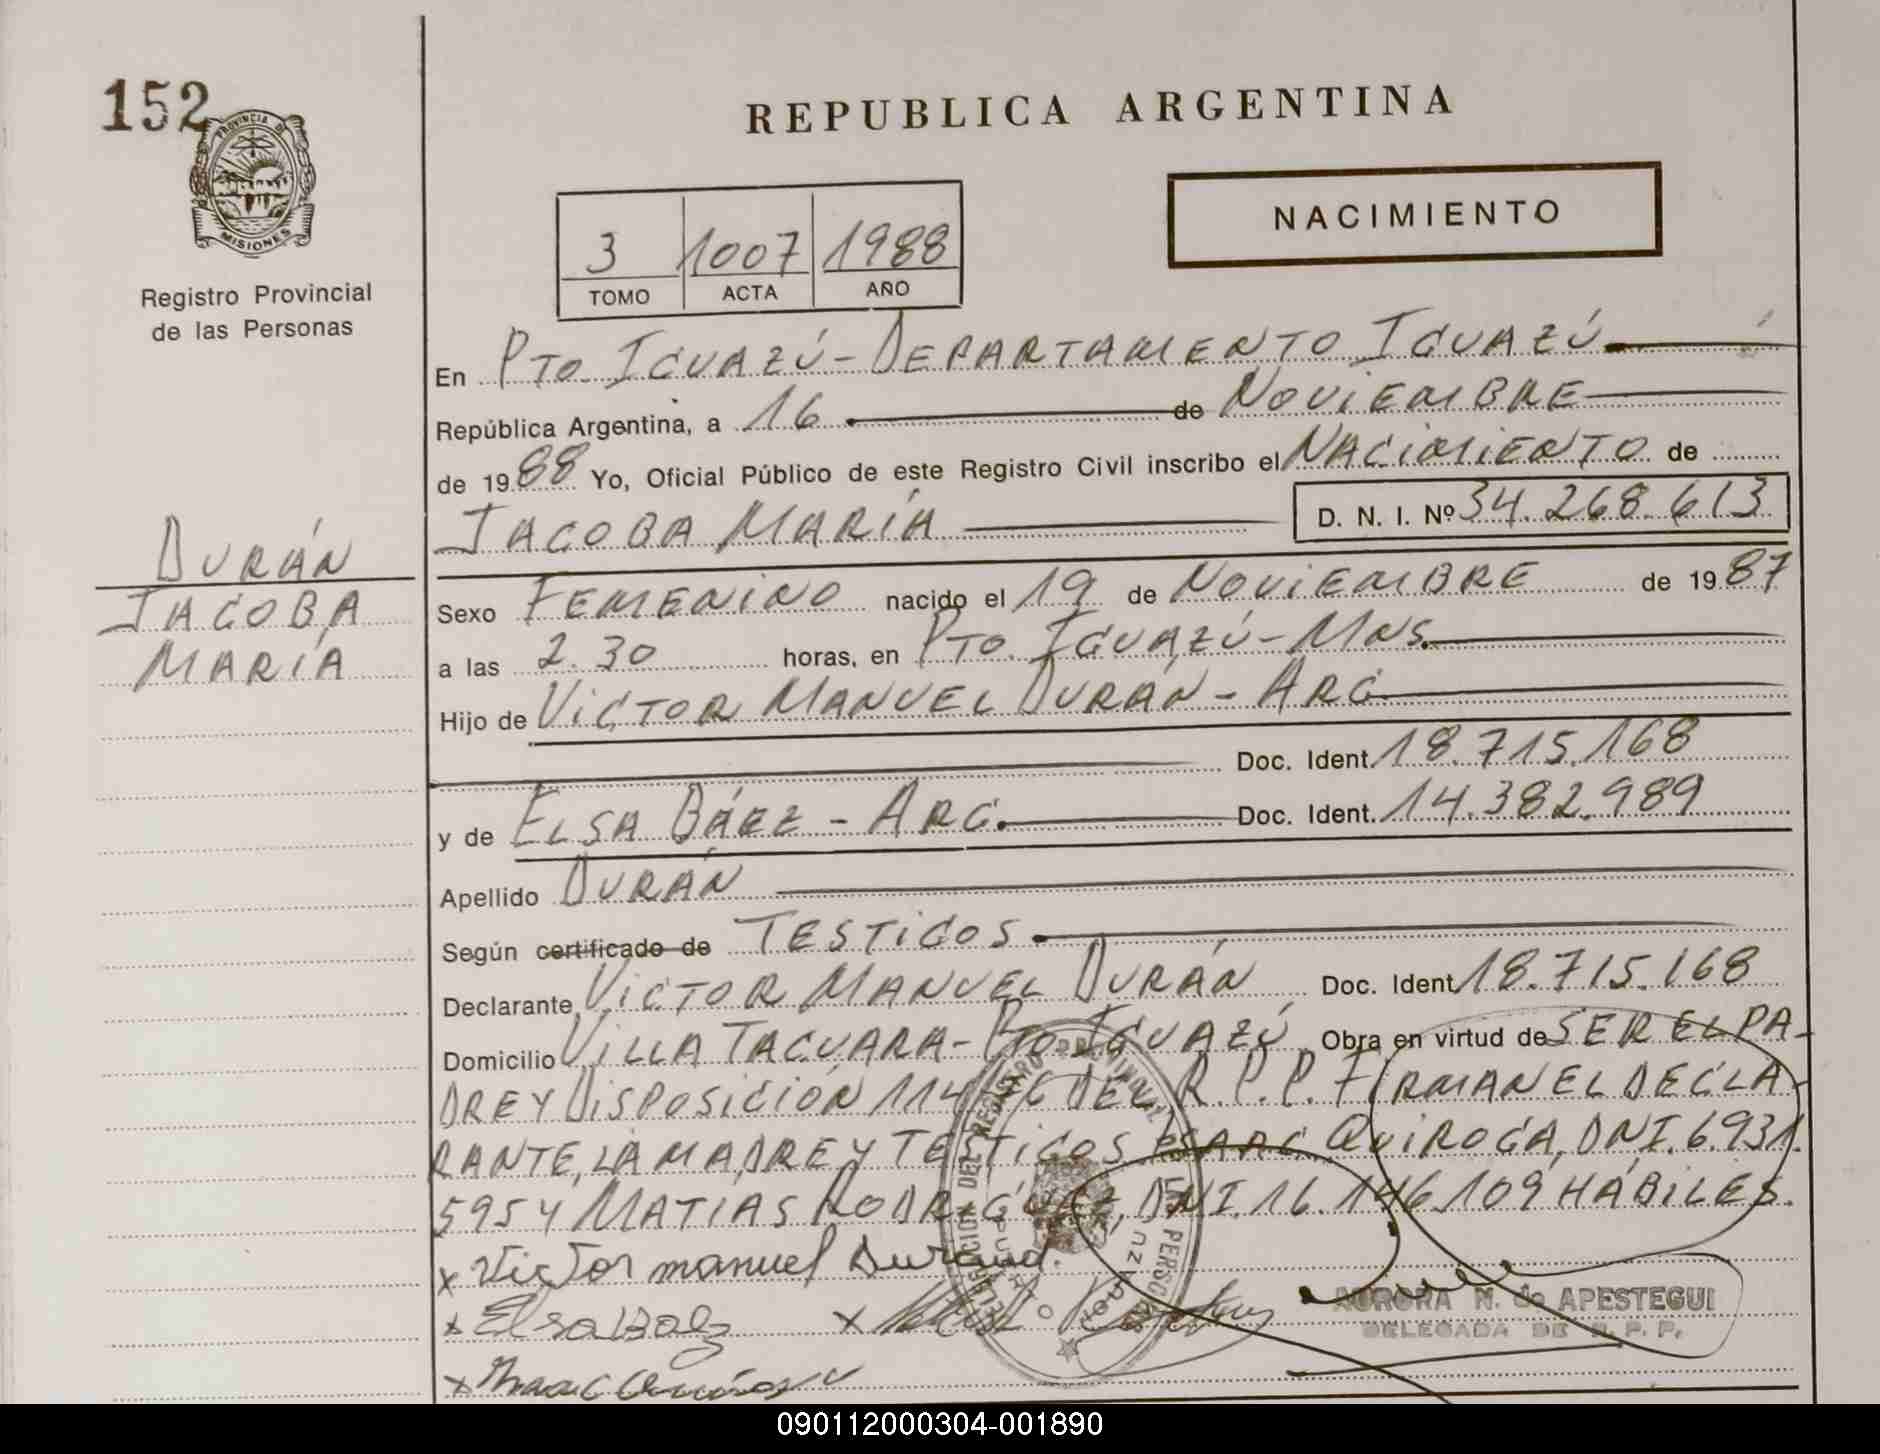 152
PROVINCIA DE
MISIONES
Registro Provincial
de las Personas
REPUBLICA ARGENTINA
NACIMIENTO
3 1007 1988
TOMO ACTA AÑO
En PTO. IGUAZÚ - DEPARTAMENTO IGUAZÚ
República Argentina, a 16 de NOVIEMBRE
de 1988 Yo, Oficial Público de este Registro Civil inscribo el NACIMIENTO de
JACOBA MARÍA D. N. I. Nº 34.268.613
DURÁN
JACOBA
MARÍA
Sexo FEMENINO nacido el 19 de NOVIEMBRE de 1987
a las 2.30 horas, en PTO. IGUAZÚ - MNS.
Hijo de VICTOR MANUEL DURÁN - ARG.
Doc. Ident. 18.715.168
y de ELSA BÁEZ - ARG. Doc. Ident. 14.382.989
Apellido DURÁN
Según certificado de TESTIGOS.
Declarante VICTOR MANUEL DURÁN Doc. Ident. 18.715.168
Domicilio VILLA TACUARA - PTO. IGUAZÚ Obra en virtud de SER EL PA-
DRE Y DISPOSICIÓN 114 DEL R.P.P. FIRMAN EL DECLA-
RANTE, LA MADRE Y TESTIGOS ISAAC QUIROGA, DNI. 6.931.
595 Y MATIAS RODRIGUEZ, DNI. 16.146.109 HÁBILES.
x Victor manuel Durand.
x Elsa Baez x
x Isaac Quiroga
AURORA N. de APESTEGUI
DELEGADA DE R. P. P.
090112000304-001890